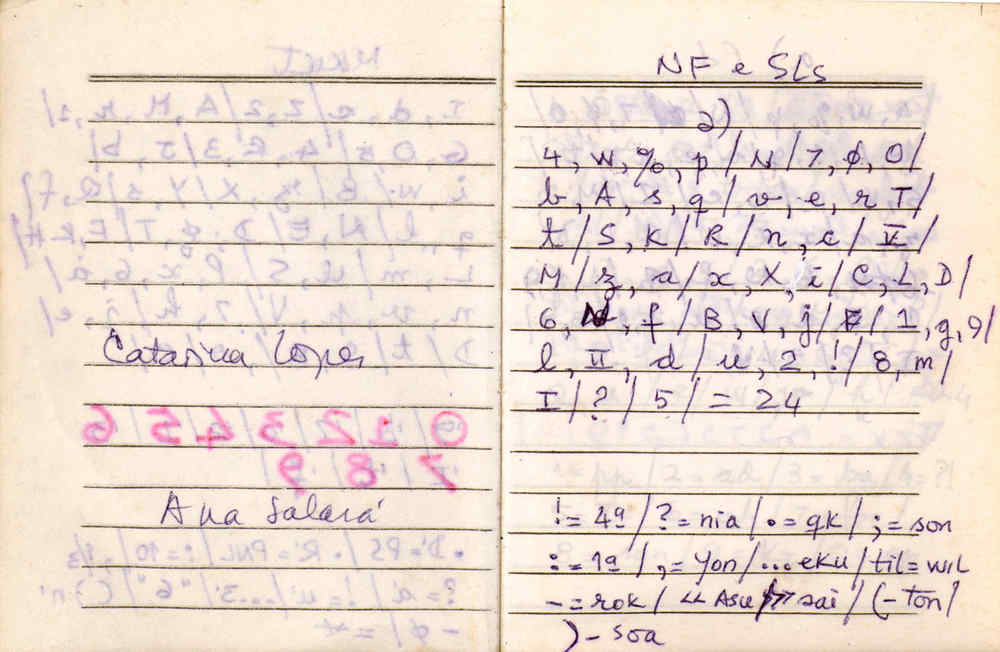 Catarina Lopes
0 1 2 3 4 5 6
7 8 9
Ana Salará
NF e SLs
a)
4, w, %, p / N / 7, ø, O /
b, A, s, q / v, e, r T /
t / S, K / R / n, c / V /
M / z, a / x, X, i / C, L, D /
6, N, f / B, V, j / F / 1, g, 9 /
l, II, d / u, 2, ! / 8, m /
I / ? / 5 / = 24
! = 4ª / ? = nia / • = qk / ; = son
: = 1ª / , = yon / ... eku / til = wil
- = rok / « Asu / » sai / ( - ton /
) - soa